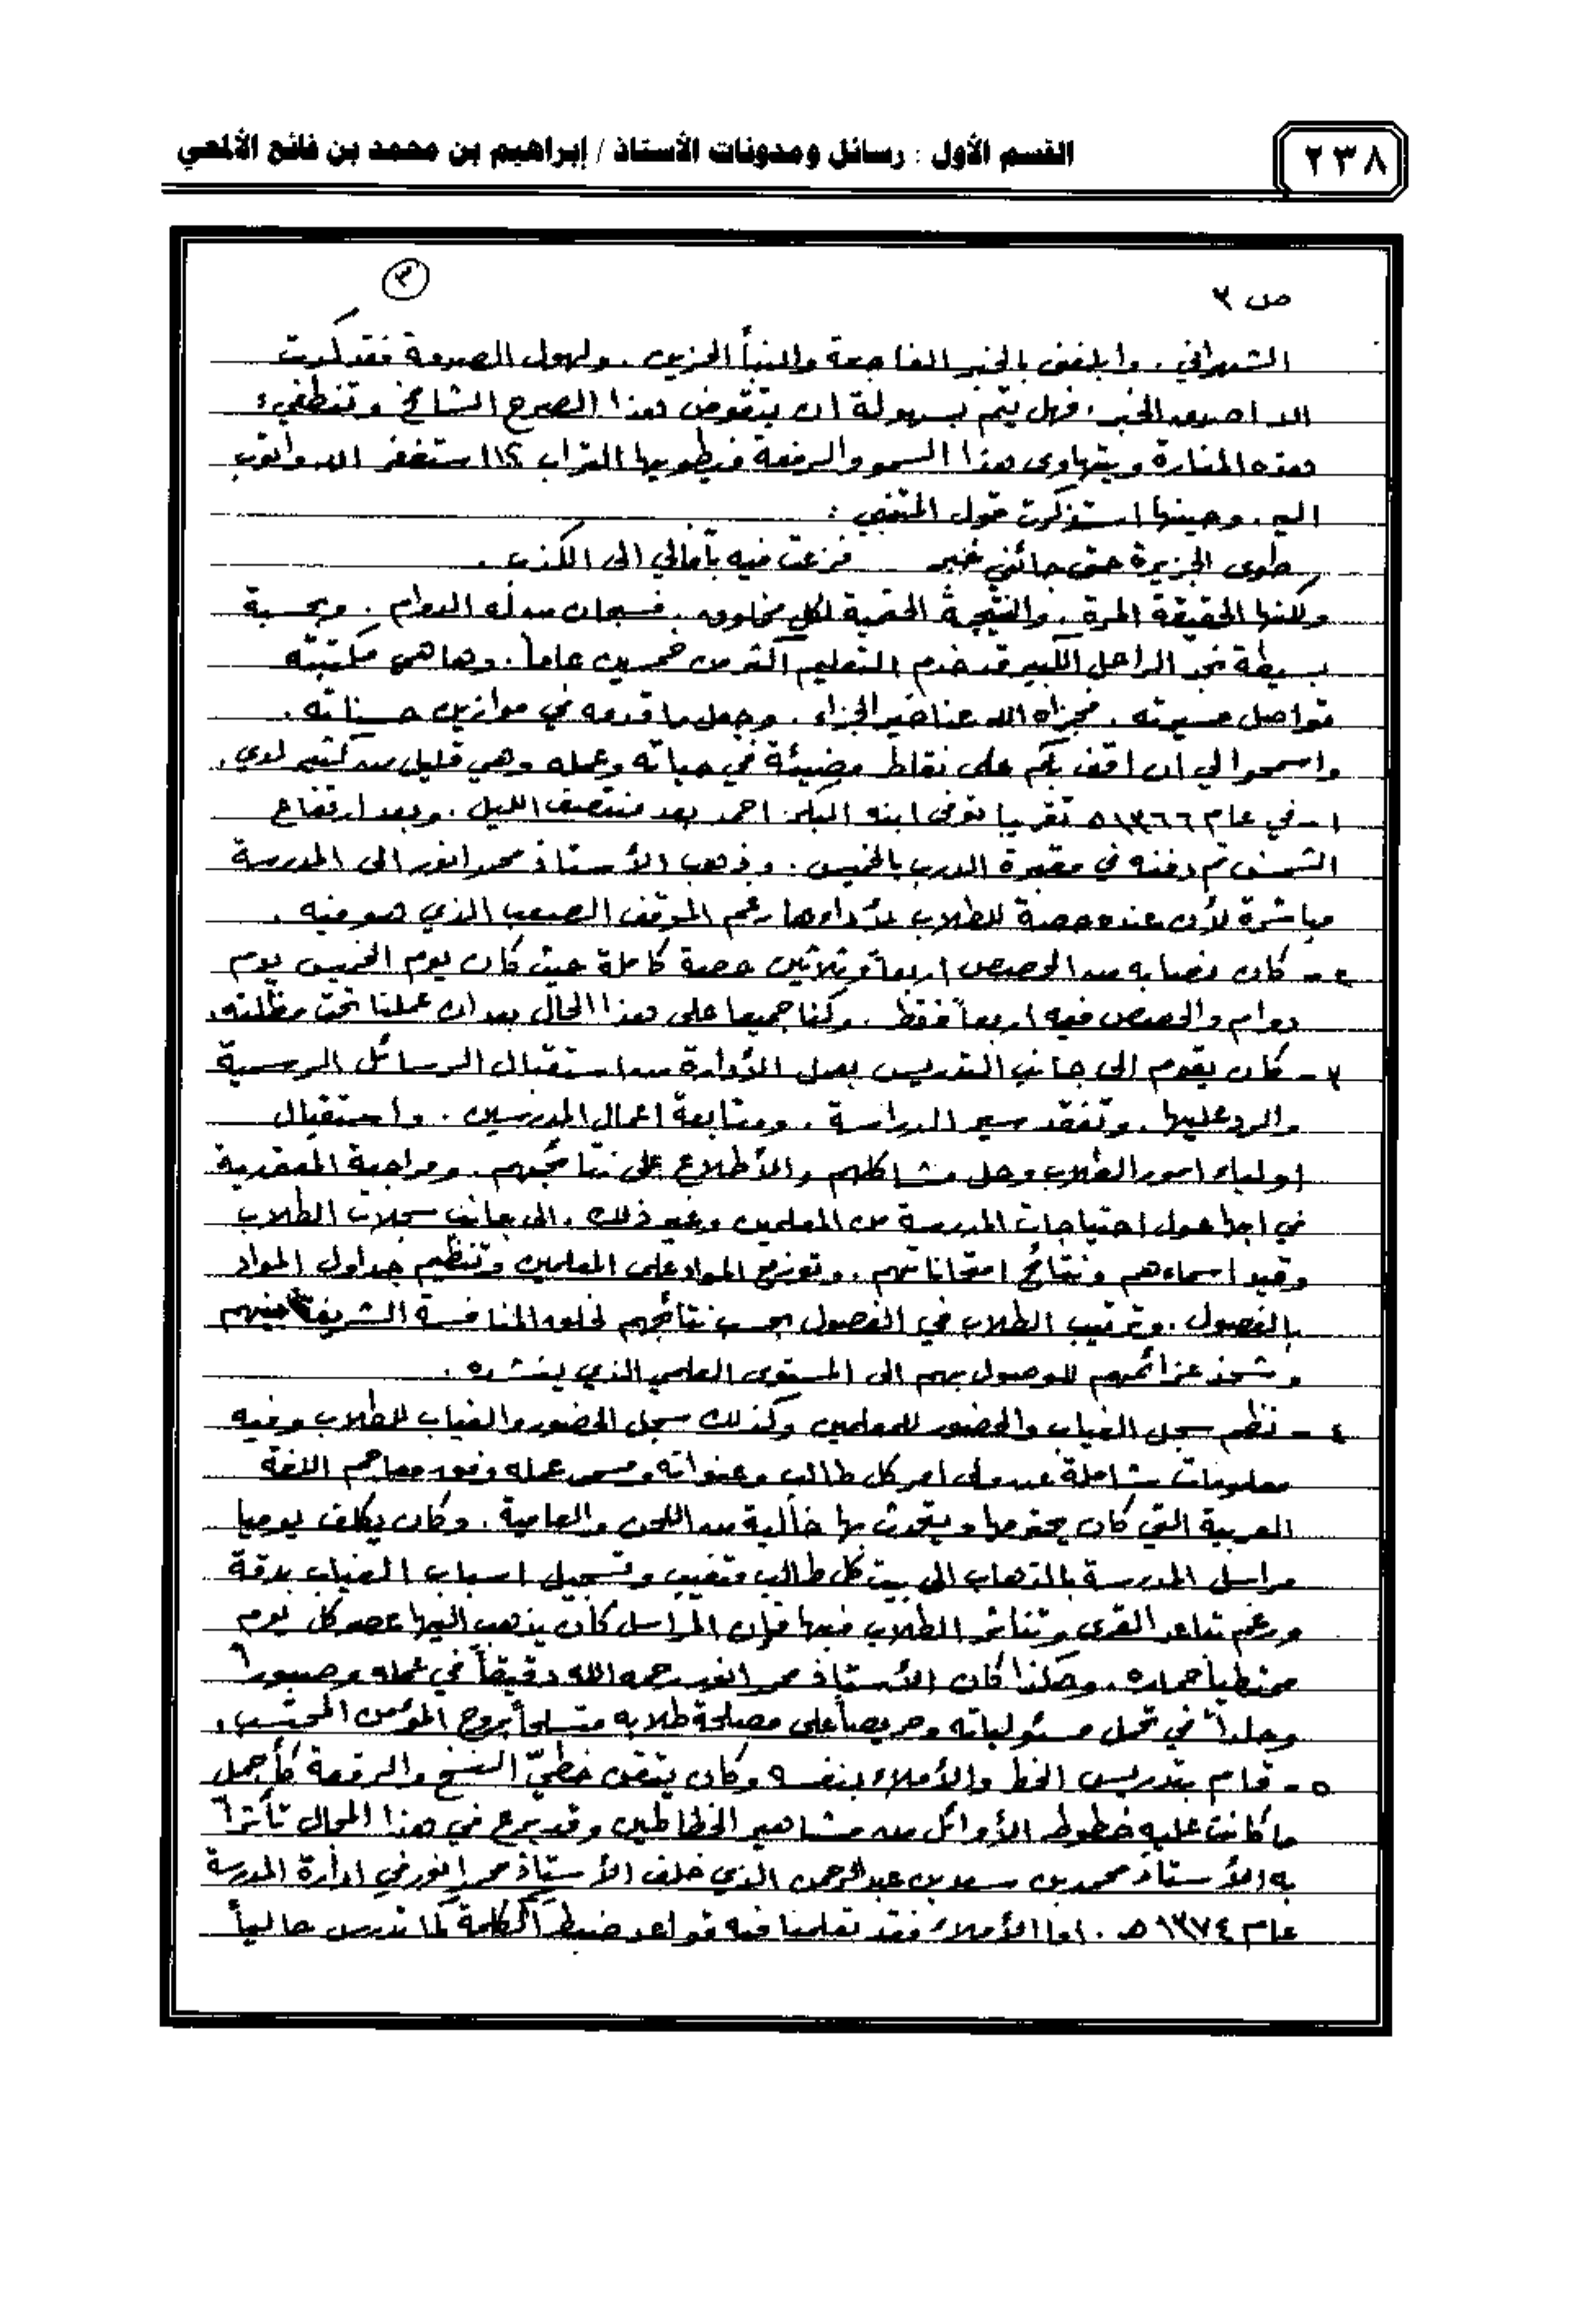 القسم الأول : رسائل ومدونات الأستاذ / إبراهيم بن محمد بن فائع الألمعي
٢٣٨
ص ٣
٣
الشهراني . وابلغني بالخبر الفاجعة والنبأ الحزين . ولهول الصدمة فقد كدت
الا اصدق الخبر . فهل يتم بسهولة ان يتقوض هذا الصرح الشامخ وتنطفيء
هذه المنارة ويتهاوى هذا السمو والرفعة فيطويها التراب ؟! استغفر الله واتوب
اليه . وحينها استذكرت قول المتنبي :
طوى الجزيرة حتى جائني خبر فزعت فيه بآمالي الى الكذب .
ولكنها الحقيقة المرة . والنتيجة الحتمية لكل مخلوق . فسبحان من له الدوام . وبحسبة
بسيطة نجد الراحل الكبير قد خدم التعليم اكثر من خمسين عاماً . وها هي مكتبته
تواصل مسيرته . فجزاه الله عنا خير الجزاء . وجعل ما قدمه في موازين حسناته .
واسمحوا لي ان اقف بكم على نقاط مضيئة في حياته وعمله وهي قليل من كثير لدي .
١ - في عام ١٣٦٦هـ تقريبا توفى ابنه البكر احمد بعد منتصف الليل . وبعد ارتفاع
الشمس تم دفنه في مقبرة الدرب بالخميس . وذهب الأستاذ محمد انور الى المدرسة
مباشرة لأن عنده حصة للطلاب لأداءها رغم الموقف الصعب الذي هو فيه .
٢ - كان نصابه من الحصص اربعة وثلاثين حصة كاملة حيث كان يوم الخميس يوم
دوام والحصص فيه اربعاً فقط . وكنا جميعا على هذا الحال بعد ان عملنا تحت مظلته .
٣ - كان يقوم الى جانب التدريس بعمل الأدارة من استقبال الرسائل الرسمية
والرد عليها . وتفقد سير الدراسة . ومتابعة اعمال المدرسين . واستقبال
اولياء امور الطلاب وحل مشاكلهم والأطلاع على نتائجهم . ومراجعة المعتمدية
في ابها حول احتياجات المدرسة من المعلمين وغير ذلك . الى جانب سجلات الطلاب
وقيد اسماءهم ونتائج امتحاناتهم . وتوزيع المواد على المعلمين وتنظيم جداول المواد
بالفصول . وترتيب الطلاب في الفصول بحسب نتائجهم لخلق المنافسة الشريفة بينهم
وشحذ عزائمهم للوصول بهم الى المستوى العلمي الذي ينشده .
٤ - نظم سجل الغياب والحضور للمعلمين وكذلك سجل الحضور والغياب للطلاب وفيه
معلومات شاملة عن ولي امر كل طالب وعنوانه ومسمى عمله وفق معاجم اللغة
العربية التي كان يحترمها ويتحدث بها خالية من اللحن والعامية . وكان يكلف يوميا
مراسل المدرسة بالذهاب الى بيت كل طالب متغيب وتسجيل اسباب الغياب بدقة
ورغم تباعد القرى وتناثر الطلاب فيها فإن المراسل كان يذهب اليها عصر كل يوم
ممتطياً حماره . وهكذا كان الأستاذ محمد انور رحمه الله دقيقاً في عمله وصبوراً
وجلداً في تحمل مسئولياته وحريصاً على مصلحة طلابه متسلحاً بروح المؤمن المحتسب .
٥ - قام بتدريس الخط والأملاء بنفسه وكان يتقن خطيّ النسخ والرقعة كأجمل
ما كانت عليه خطوط الأوائل من مشاهير الخطاطين وقد برع في هذا المجال تأثراً
به الأستاذ محمد بن سعد بن عبدالرحمن الذي خلف الأستاذ محمد انور في ادارة المدرسة
عام ١٣٧٤ هـ . اما الأملاء فقد تعلمنا فيه قواعد ضبط الكلمة كما تدرس حالياً